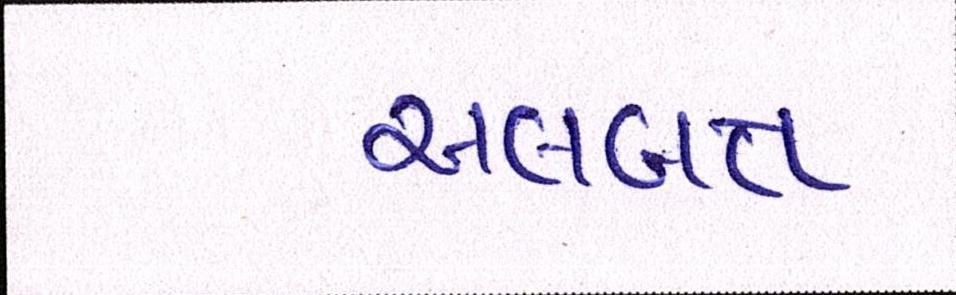 અલબત્ત